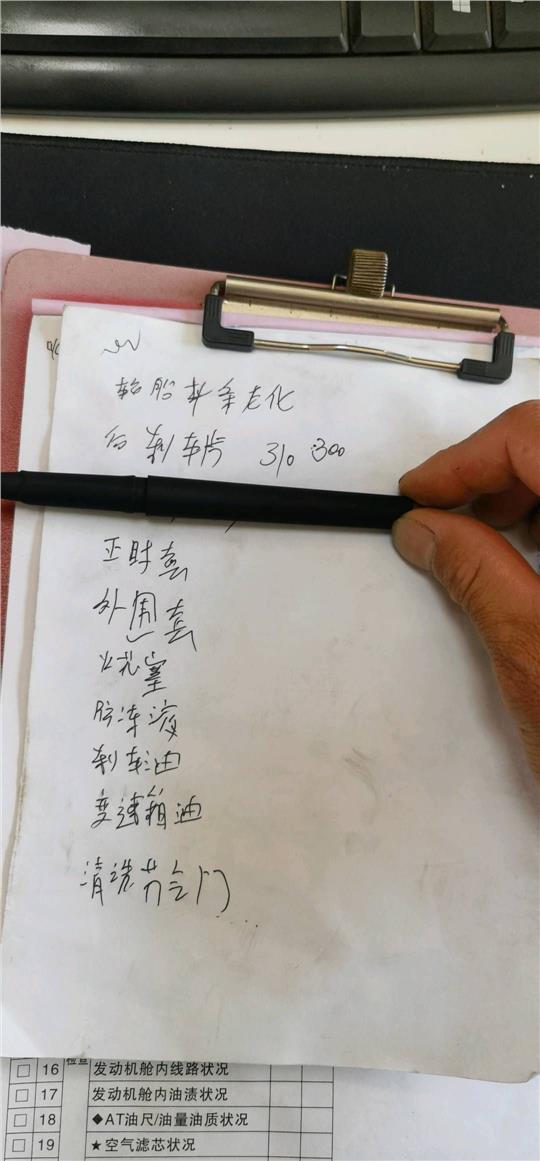 轮胎 老化
刹车片 310 300
正时套
外围套
燃烧室
防冻液
刹车油
变速箱油
清洗节气门
16 发动机舱内线路状况
17 发动机舱内油渍状况
18 ◆AT油尺/油量油质状况
19 ★空气滤芯状况